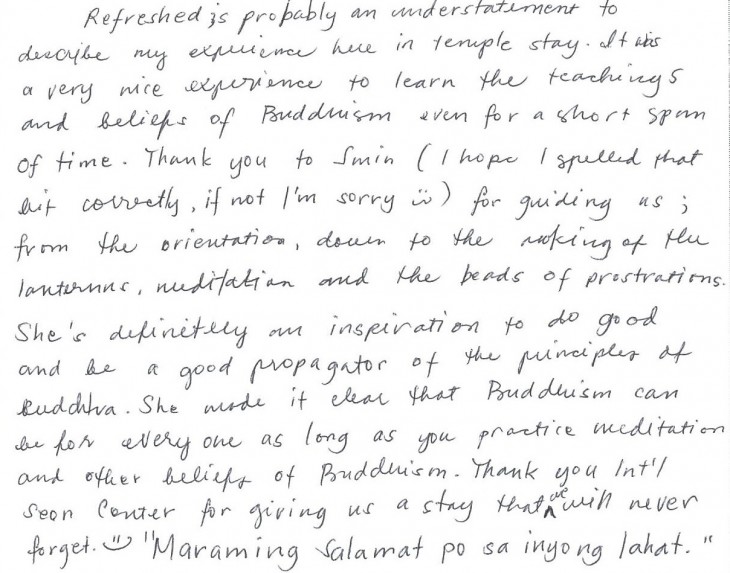 Refreshed is probably an understatement to
describe my experience here in temple stay. It was
a very nice experience to learn the teachings
and beliefs of Buddhism even for a short span
of time. Thank you to Smin (I hope I spelled that
bit correctly, if not I'm sorry ü) for guiding us;
from the orientation, down to the making of the
lanterns, meditation and the beads of prostrations.
She's definitely an inspiration to do good
and be a good propagator of the principles of
Buddha. She made it clear that Buddhism can
be for every one as long as you practice meditation
and other beliefs of Buddhism. Thank you Int'l
Seon Center for giving us a stay that we will never
forget. ü "Maraming Salamat po sa inyong lahat."